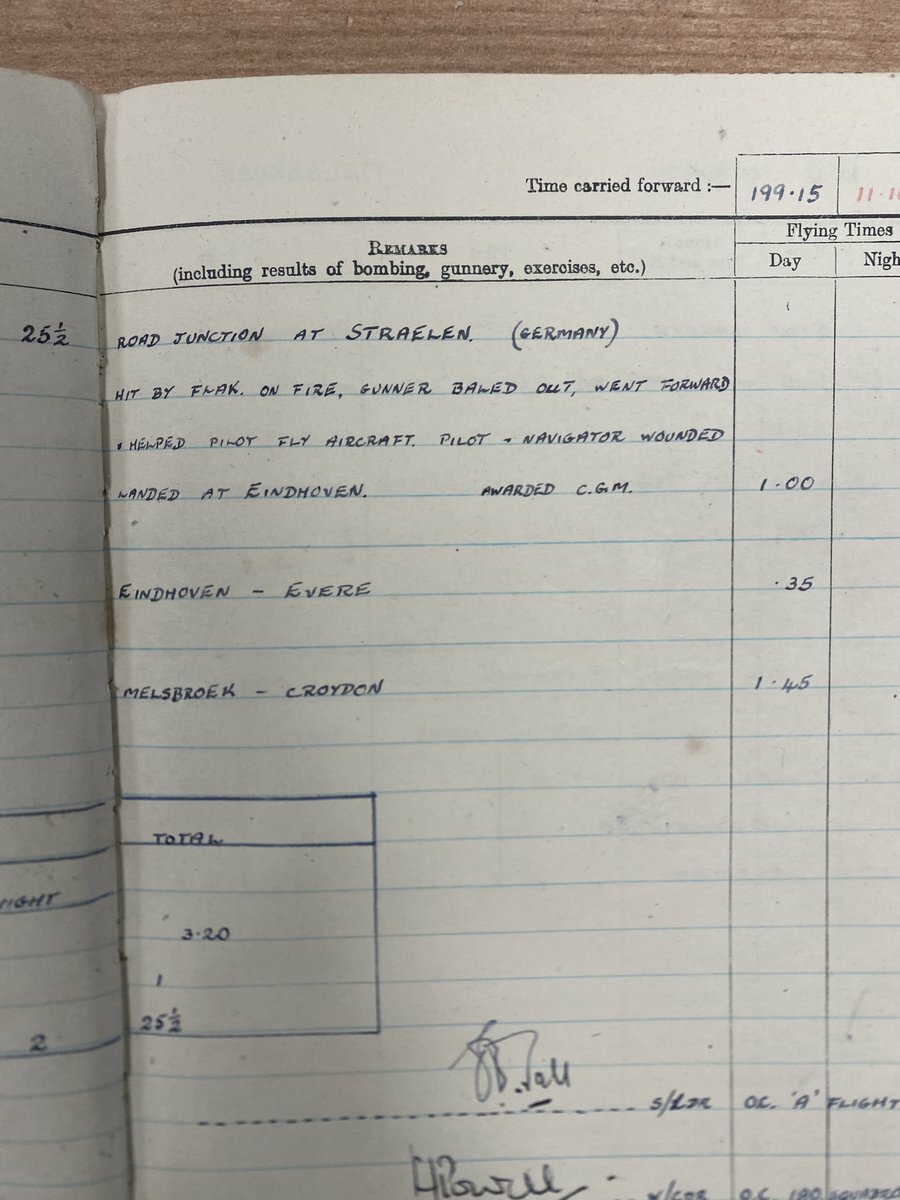 Time carried forward :— 199.15
REMARKS
(including results of bombing, gunnery, exercises, etc.)
Flying Times
Day
25½ ROAD JUNCTION AT STRAELEN. (GERMANY)
HIT BY FLAK. ON FIRE, GUNNER BALED OUT, WENT FORWARD
& HELPED PILOT FLY AIRCRAFT. PILOT & NAVIGATOR WOUNDED
LANDED AT EINDHOVEN. AWARDED C.G.M. 1.00
EINDHOVEN – EVERE .35
MELSBROEK – CROYDON 1.45
TOTAL
3.20
1
25½
2
S/LDR O.C. 'A' FLIGHT
HPowell